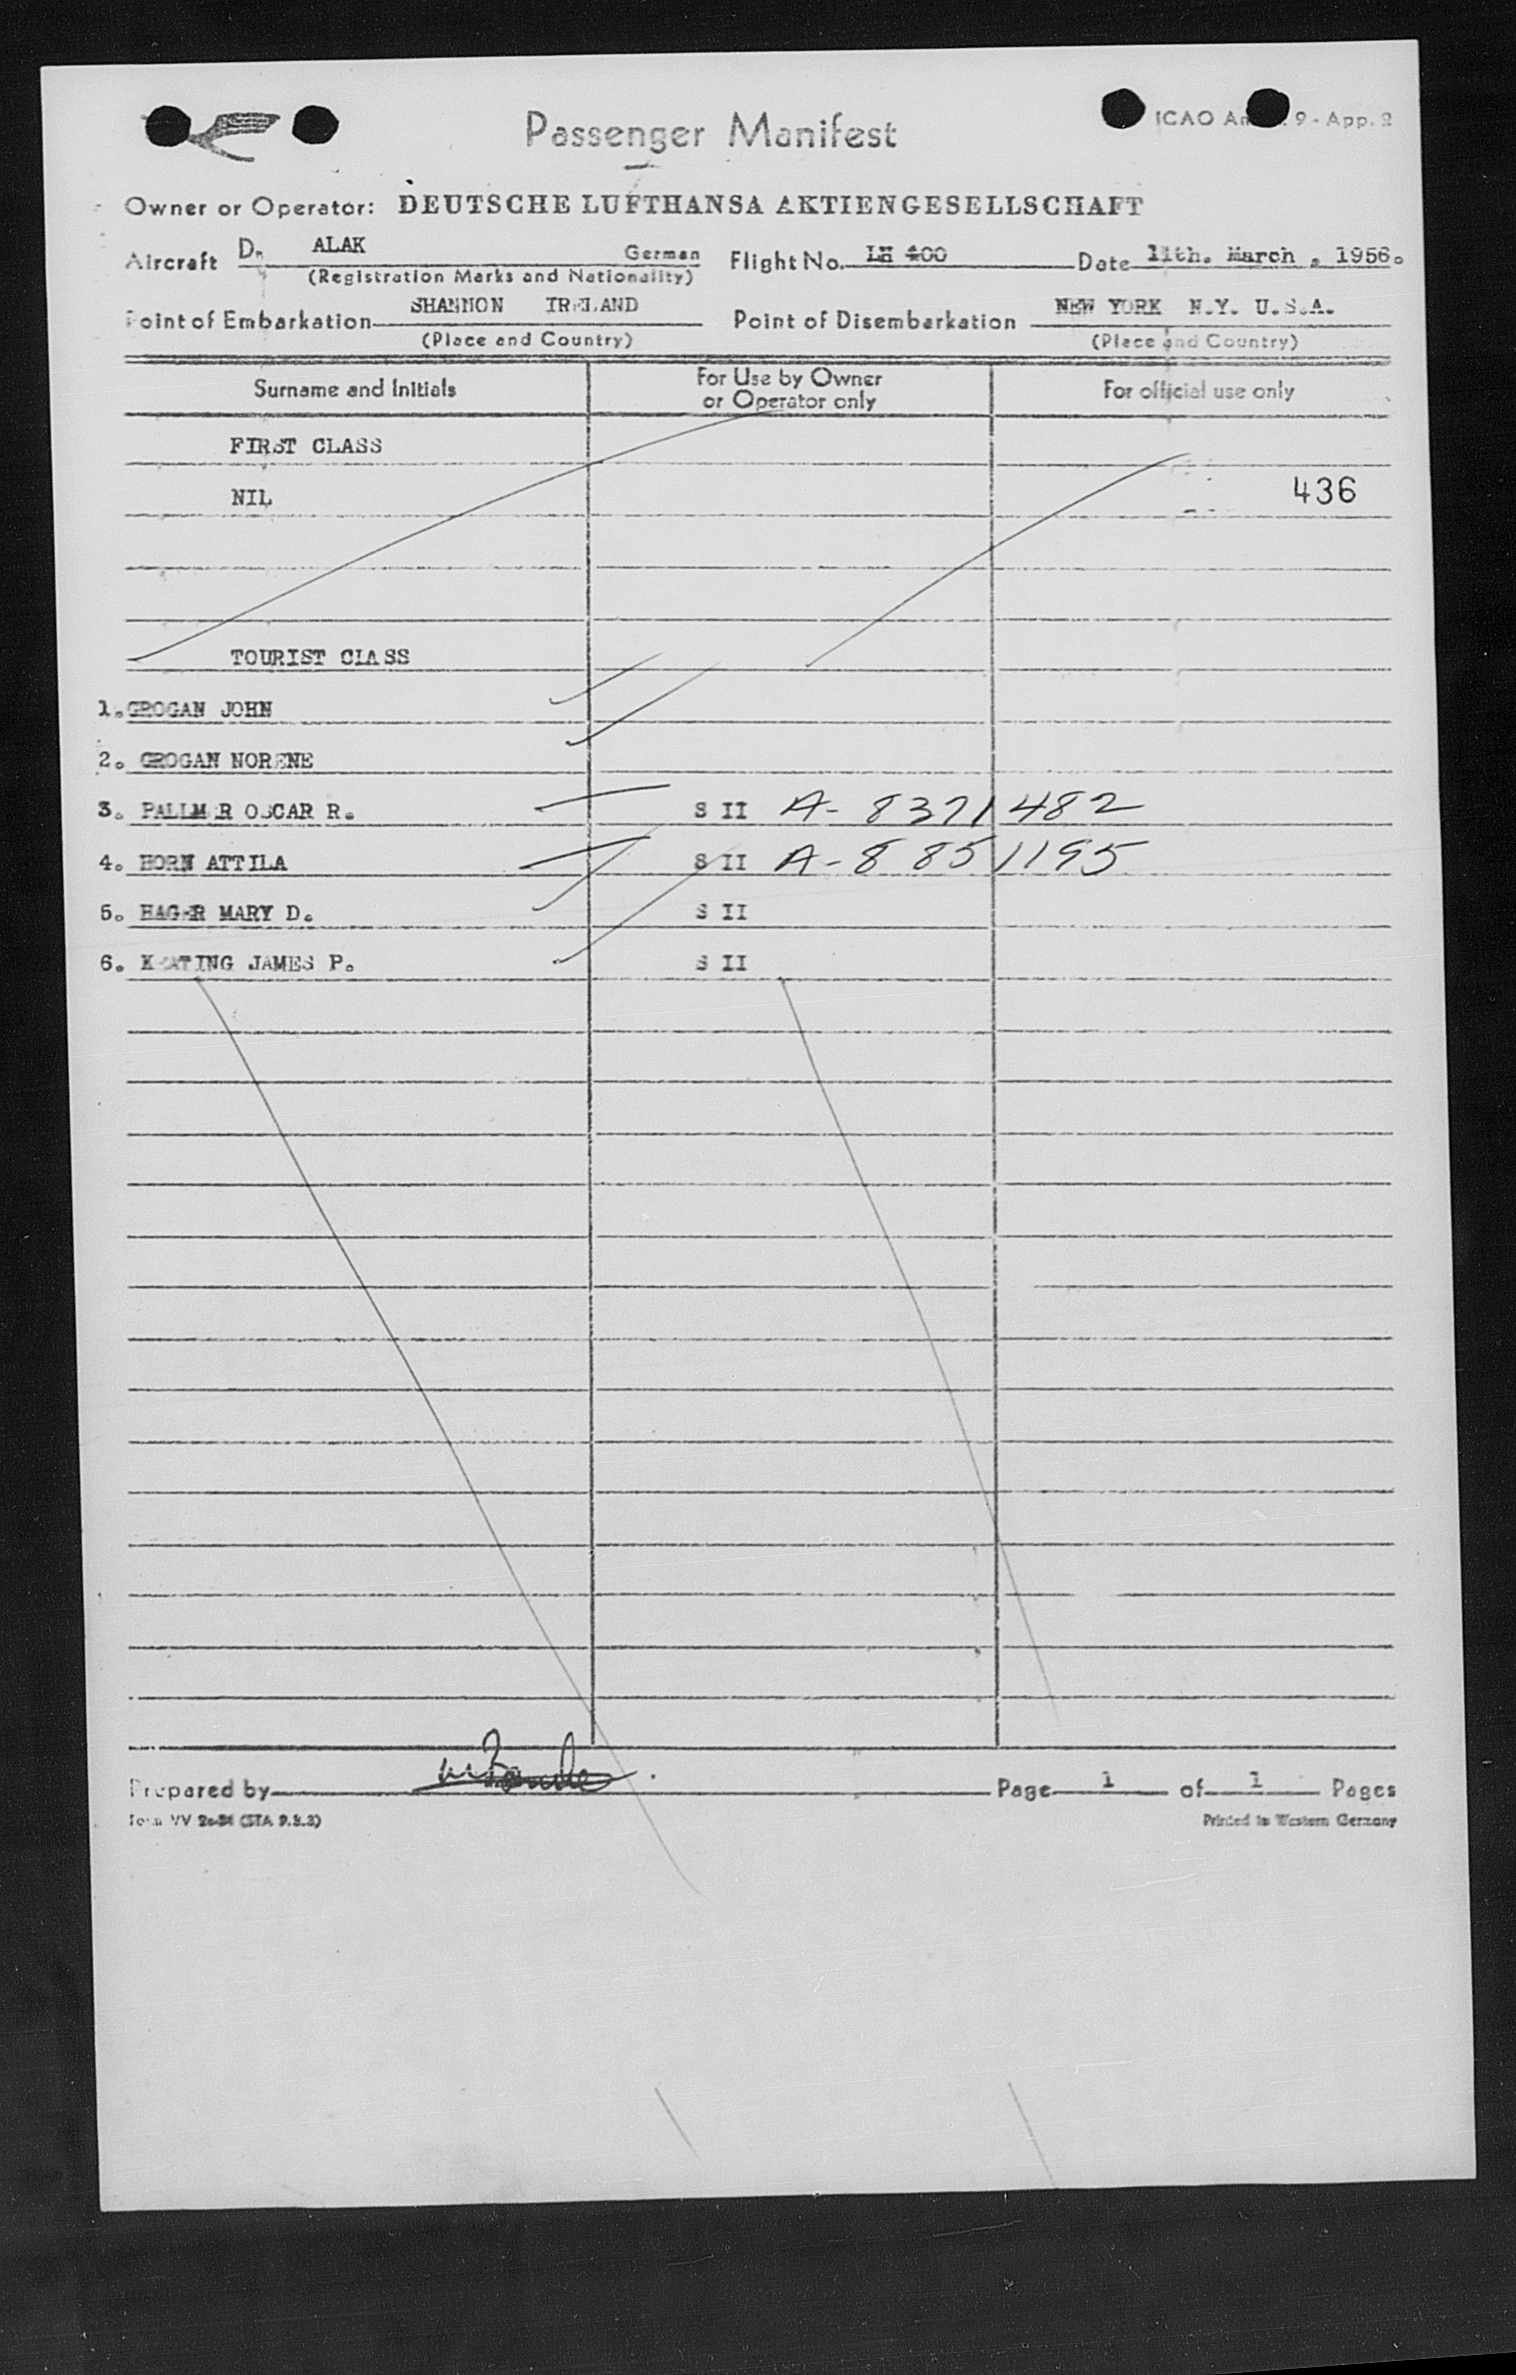 Passenger Manifest
ICAO An 9 - App. 2
Owner or Operator: DEUTSCHE LUFTHANSA AKTIENGESELLSCHAFT
Aircraft D- ALAK German Flight No. LH 400 Date 11th. March . 1956.
(Registration Marks and Nationality)
Point of Embarkation SHANNON IRELAND Point of Disembarkation NEW YORK N.Y. U.S.A.
(Place and Country) (Place and Country)
Surname and Initials For Use by Owner or Operator only For official use only
FIRST CLASS
NIL 436
TOURIST CLASS
1. GROGAN JOHN
2. GROGAN NORENE
3. PALLMER OSCAR R. S II A- 8371482
4. HORN ATTILA S II A- 8851195
5. HAGER MARY D. S II
6. KEATING JAMES P. S II
Prepared by Page 1 of 1 Pages
Form VV Printed in Western Germany